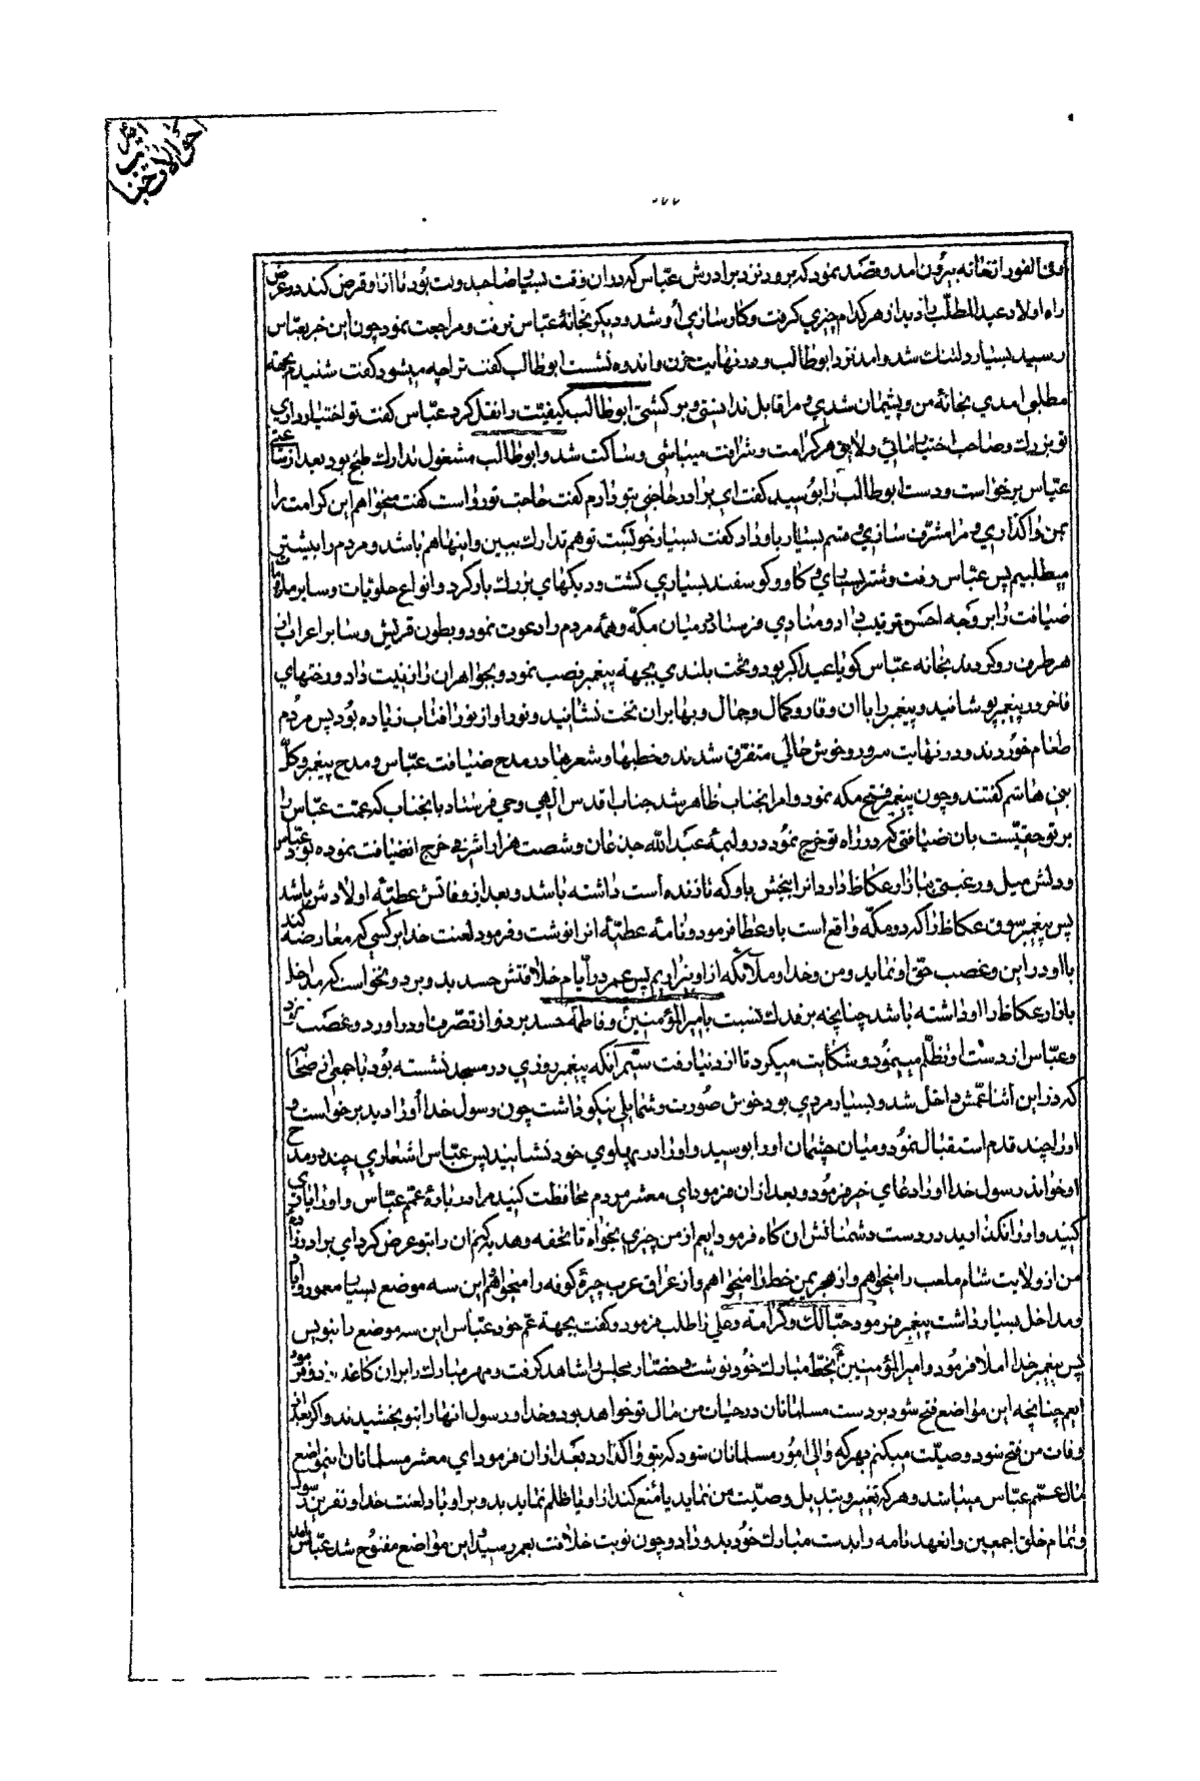 احوالات
جناب عباس
وفی الفور از خانه بیرون آمد و قصد نمود که برود نزد برادرش عباس که در آن وقت بسیار صاحب دولت بود تا از او قرض کند در عرض
راه اولاد عبدالمطلب را دید از هر کدام چیزی گرفت و کارسازی او شد و دیگر بخانهٔ عباس نرفت و مراجعت نمود چون این خبر بعباس
رسید بسیار دلتنگ شد و آمد نزد ابوطالب و در نهایت حزن و اندوه نشست ابوطالب گفت ترا چه میشود گفت شنیدم بجهة
مطلبی آمدی بخانهٔ من و پشیمان شدی و مرا قابل ندانستی و برگشتی ابوطالب کیفیّت را نقل کرد عباس گفت تو اختیار داری
تو بزرگ و صاحب اختیار مائی و لایق هر کرامت و شرافت میباشی و ساکت شد و ابوطالب مشغول تدارک طبخ بود بعد از ساعتی
عبّاس برخواست و دست ابوطالب را بوسید گفت ای برادر حاجتی بتو دارم گفت حاجت تو رواست گفت میخواهم این کرامت را
بمن واگذاری و مرا مشرّف سازی و قسم بسیار باو داد گفت بسیار خوبست تو هم تدارک ببین و اینها هم باشد و مردم را بیشتر
میطلبیم پس عباس رفت و شتر بسیاری و گاو و گوسفند بسیاری کشت و دیکهای بزرگ بار کرد و انواع حلویات و سایر مایده
ضیافت را بر وجه احسن ترتیب داد و منادی فرستاد در میان مکّه و همه مردم را دعوت نمود و بطون قریش و سایر اعراب از
هر طرف رو کردند بخانه عباس گویا عید اکبر بود و تخت بلندی بجهة پیغمبر نصب نمود و بجواهران را زینت داد و رختهای
فاخر در پیغمبر پوشانید و پیغمبر را با آن وقار و کمال و جمال و بها بر آن تخت نشانید و نور او از نور آفتاب زیاده بود پس مردم
طعام خوردند و در نهایت سرور و خوش حالی متفرق شدند و خطبها و شعرها در مدح ضیافت عباس و مدح پیغمبر و کلّ
بنی هاشم گفتند و چون پیغمبر فتح مکه نمود و امر آنجناب ظاهر شد جناب اقدس الهی وحی فرستاد بآنجناب که عمّت عباس را
بر تو حقیّست بآن ضیافتی که در راه تو خرج نمود در ولیمهٔ عبدالله جذعان و شصت هزار اشرفی خرج آنضیافت نموده بود عباس
و دلش میل و رغبتی ببازار عکاظ دارد آنرا ببخش باو که تا زنده است داشته باشد و بعد از وفاتش عطیّه اولادش باشد
پس پیغمبر سوق عکاظ را که در مکّه واقع است باو عطا فرمود و نامهٔ عطیّهٔ آنرا نوشت و فرمود لعنت خدا بر کسی که معارضه کند
با او در این و غصب حقّ او نماید و من و خدا و ملآئکه از او بیزاریم پس عمر در ایّام خلافتش حسد بد و برد و نخواست که مداخل
بازار عکاظ را او داشته باشد چنانچه بر فدک نسبت بامیرالمؤمنین و فاطمة حسد برد و از تصرف او در آورد و غصب کرد
و عبّاس از دست او تظلّم مینمود و شکایت میکرد تا از دنیا رفت سیّم آنکه پیغمبر روزی در مسجد نشسته بود با جمعی از صحابه
که در این اثنا عمّش داخل شد و بسیار مردی بود خوش صورت و شمایلی نیکو داشت چون رسول خدا او را دید برخواست و
او را چند قدم استقبال نمود و میان چشمان او را بوسید و او را در پهلوی خود نشانید پس عبّاس اشعاری چند در مدح
او خواند رسول خدا او را دعای خیر فرمود و بعد از آن فرمود ای معشر مردم محافظت کنید مرا در بارهٔ عمّم عبّاس و او را یاری
کنید و او را نگذارید در دست دشمنانش آنگاه فرمود ایعم از من چیزی بخواه تا تحفه و هدیه کنم آن را بتو عرض کرد ای برادرزاده
من از ولایت شام ملعب را میخواهم و از هجر یمن خط را میخواهم و از عراق عرب حیرهٔ کوفه را میخواهم این سه موضع بسیار معمور
و مداخل بسیار داشت پیغمبر فرمود حبّا لک و کرامة و علی را طلب فرمود و گفت بجهة عم خود عبّاس این سه موضع را بنویس
پس پیغمبر خدا املا فرمود و امیرالمؤمنین بخطّ مبارک خود نوشت و حضّار مجلس را شاهد گرفت و مهر مبارک را بر آن کاغذ زد و فرمود
ایعم چنانچه این مواضع فتح شود بر دست مسلمانان در حیات من مال تو خواهد بود و خدا و رسول آنها را بتو بخشیدند و اگر بعد از
وفات من فتح شود وصیّت میکنم بهر که والی امور مسلمانان شود که بتو واگذارد بعد از آن فرمود ای معشر مسلمانان این مواضع
مال عمّم عبّاس میباشد و هر که تغییر و تبدیل وصیّت من نماید یا منع کند از او یا ظلم نماید بد و بر او باد لعنت خدا و نفرین رسول
و تمام خلق اجمعین و آنعهد نامه را بدست مبارک خود بد و داد و چون نوبت خلافت بعمر رسید و این مواضع مفتوح شد عبّاس آمد